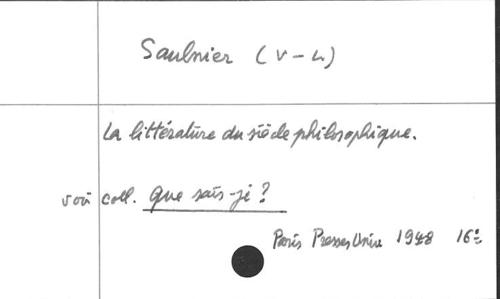 Saulnier (V-L)
La littérature du siècle philosophique.
voir coll. que sais-je?
Paris Presses Univ 1948 16°